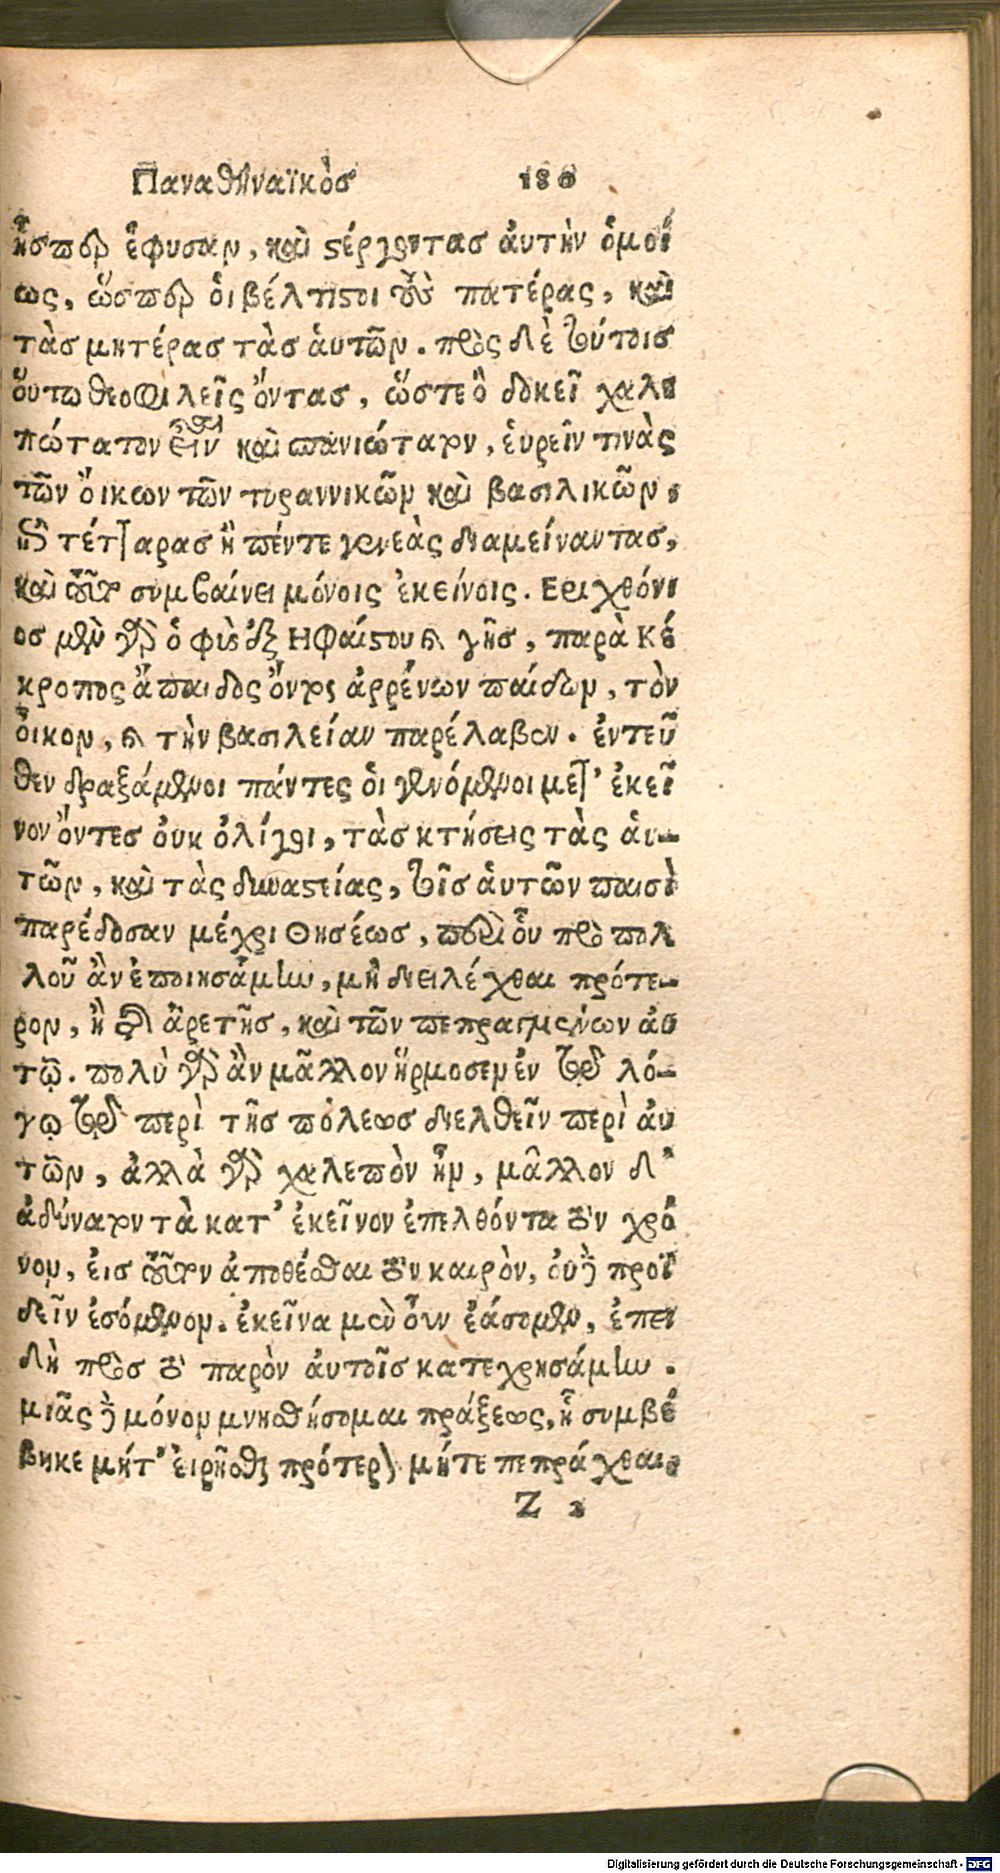 Παναθηναϊκὸσ 180
ἧσπερ ἔφυσαν, καὶ στέργοντασ ἀυτὴν ὁμοί
ως, ὥσπερ ὁι βέλτιστοι τοὺς πατέρας, καὶ
τὰσ μητέρασ τὰσ ἁυτῶν. πρὸς δὲ τούτοισ
ὅυτω θεοφιλεῖς ὄντασ, ὥστε ὃ δοκεῖ χαλε
πώτατον εἶναι καὶ σπανιώτατον, ἑυρεῖν τινὰς
τῶν ὄικων τῶν τυραννικῶν καὶ βασιλικῶν,
ἐπὶ τέτταρασ ἢ πέντε γενεὰς διαμείναντασ,
καὶ τοῦτο συμβαίνει μόνοις ἐκείνοις. Εριχθόνι
οσ μὲν γὰρ ὁ φὺς ἐξ Ηφαίστου καὶ γῆσ, παρὰ Κέ
κροπος ἄπαιδος ὄντος ἀρρένων παίδων, τὸν
ὀικον, καὶ τὴν βασιλείαν παρέλαβεν. ἐντεῦ
θεν δ'ραξάμενοι πάντες ὁι γενόμενοι μετ' ἐκεῖ
νον ὄντεσ ὀυκ ὀλίγοι, τὰσ κτήσεις τὰς ἁυ-
τῶν, καὶ τὰς δυναστείας, τοῖσ ἁυτῶν παισὶ
παρέδοσαν μέχρι Θησέωσ, περὶ οὗ πρὸ πολ
λοῦ ἂν ἐποιησάμην, μὴ διειλέχθαι πρότε-
ρον, ἢ περὶ ἀρετῆσ, καὶ τῶν πεπραγμένων ἀυ
τῷ. πολὺ γὰρ ἂν μᾶλλον ἥρμοσεν ἐν τῷ λό-
γῳ τῷ περὶ τῆσ πόλεωσ διελθεῖν περὶ ἀυ
τῶν, ἀλλὰ γὰρ χαλεπὸν ἦν, μᾶλλον δ'
ἀδύνατον τὰ κατ' ἐκεῖνον ἐπελθόντα τὸν χρό
νον, ἐισ τοῦτον ἀποθέσθαι τὸν καιρὸν, ὀυ γὰρ προῄ
δειν ἐσόμενον. ἐκεῖνα μὲν οὖν ἐάσομεν, ἐπει
δὴ πρὸσ τὸ παρὸν ἀυτοῖσ κατεχρησάμην.
μιᾶς δὲ μόνον μνησθήσομαι πράξεως, ἣ συμβέ
βηκε μήτ' ἐιρῆσθαι πρότερον μήτε πεπράχθαι,
Z 2
Digitalisierung gefördert durch die Deutsche Forschungsgemeinschaft - DFG